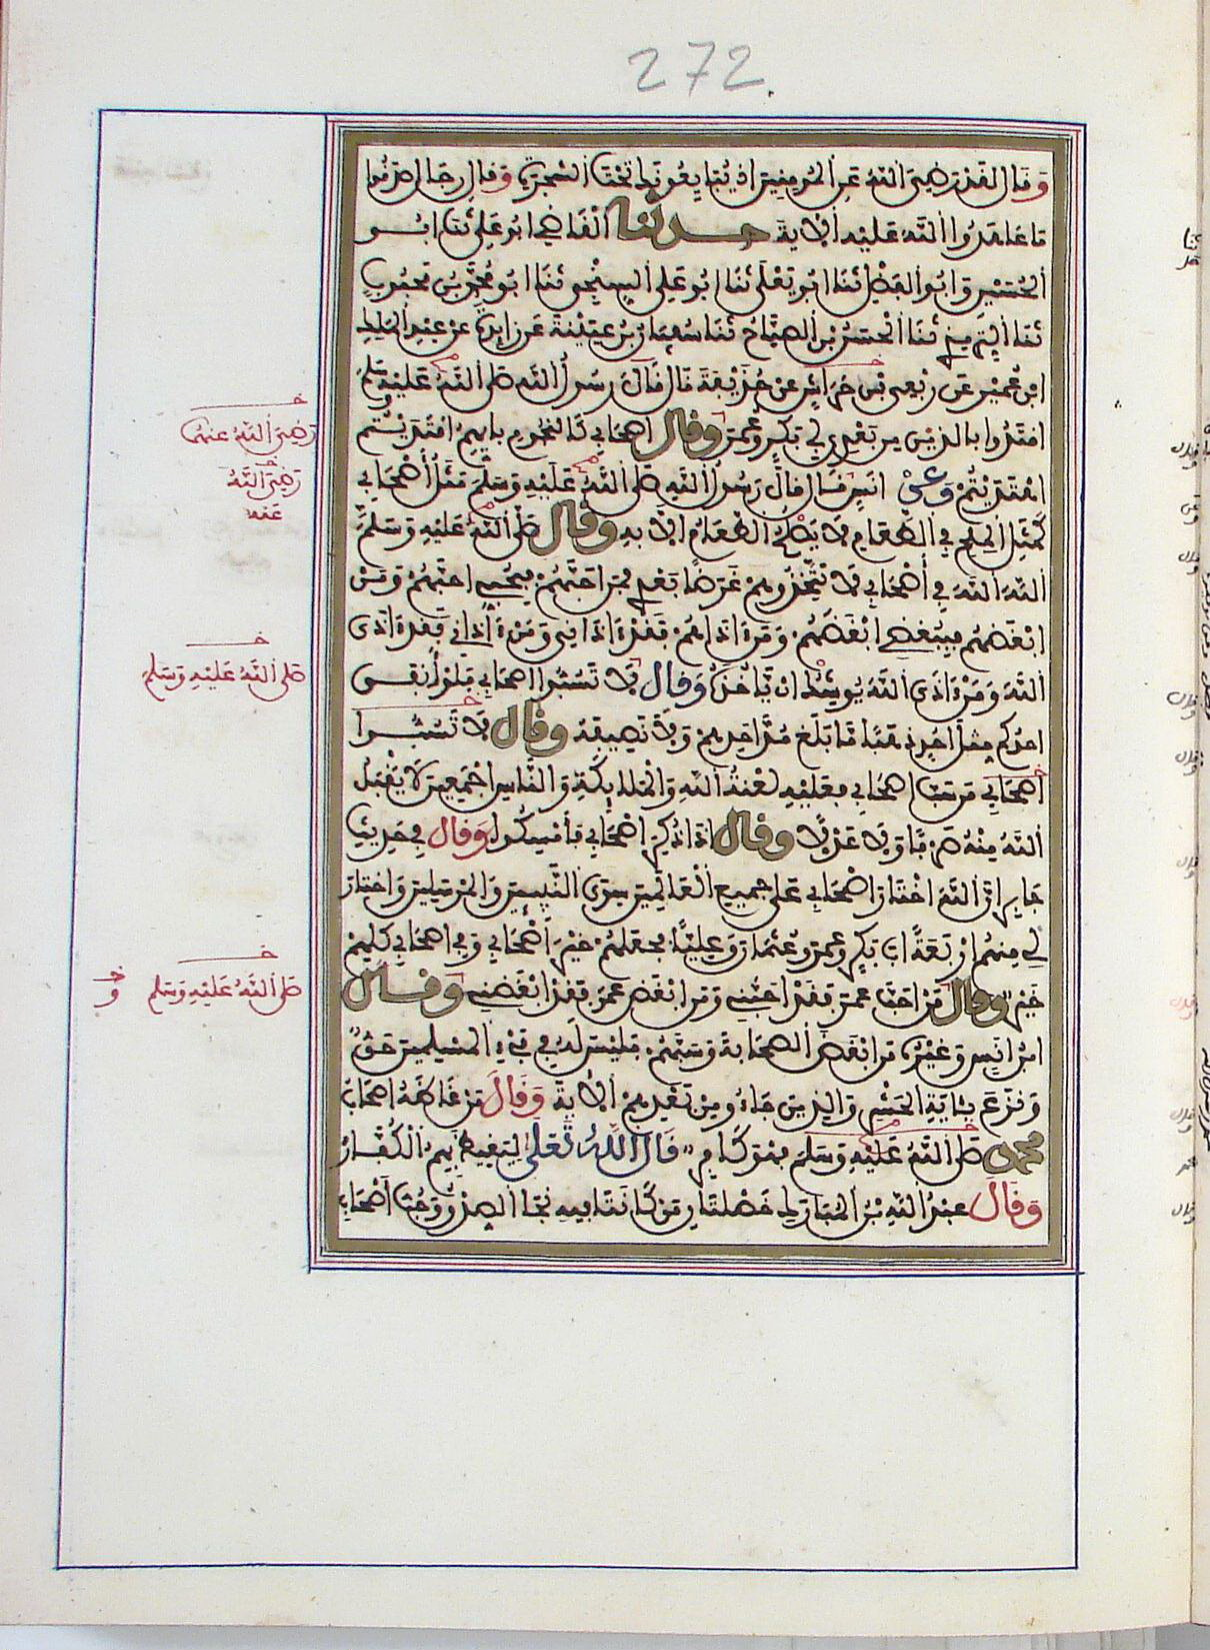 272.
وَقَالَ لَقَدْ رَضِيَ اللَّهُ عَنِ الْمُومِنِينَ إِذْ يُبَايِعُونَكَ تَحْتَ الشَّجَرَةِ وَقَالَ رِجَالٌ صَدَقُوا
مَا عَاهَدُوا اللَّهَ عَلَيْهِ الْآيَةَ حدثنا الْقَاضِي أَبُو عَلِي ثَنَا أَبُو
الْحُسَيْنِ وَأَبُو الْفَضْلِ ثَنَا أَبُو يَعْلَى ثَنَا أَبُو عَلِي السِّنْجِي ثَنَا أَبُو مُحَمَّدِ بْنُ مَحْبُوبٍ
ثَنَا التِّرْمِذِي ثَنَا الْحَسَنُ بْنُ الصَّبَّاحِ ثَنَا سُفْيَانُ بْنُ عُيَيْنَةَ عَنْ زَائِدَةَ عَنْ عَبْدِ الْمَلِكِ
ابْنِ عُمَيْرٍ عَنْ رِبْعِيِّ بْنِ حِرَاشٍ عَنْ حُذَيْفَةَ قَالَ قَالَ رَسُولُ اللَّهِ صَلَّى اللَّهُ عَلَيْهِ وَسَلَّمَ
اقْتَدُوا بِالَّذَيْنِ مِنْ بَعْدِي أَبِي بَكْرٍ وَعُمَرَ وقال أَصْحَابِي كَالنُّجُومِ بِأَيِّهِمُ اقْتَدَيْتُمُ
اهْتَدَيْتُمْ وَعَنْ أَنَسٍ قَالَ قَالَ رَسُولُ اللَّهِ صَلَّى اللَّهُ عَلَيْهِ وَسَلَّمَ مَثَلُ أَصْحَابِي
كَمَثَلِ الْمِلْحِ فِي الطَّعَامِ لَا يَصْلُحُ الطَّعَامُ إِلَّا بِهِ وقال صَلَّى اللَّهُ عَلَيْهِ وَسَلَّمَ
اللَّهَ اللَّهَ فِي أَصْحَابِي لَا تَتَّخِذُوهُمْ غَرَضًا بَعْدِي فَمَنْ أَحَبَّهُمْ فَبِحُبِّي أَحَبَّهُمْ وَمَنْ
أَبْغَضَهُمْ فَبِبُغْضِي أَبْغَضَهُمْ وَمَنْ آذَاهُمْ فَقَدْ آذَانِي وَمَنْ آذَانِي فَقَدْ آذَى
اللَّهَ وَمَنْ آذَى اللَّهَ يُوشِكُ أَنْ يَأْخُذَهُ وَقَالَ لَا تَسُبُّوا أَصْحَابِي فَلَوْ أَنْفَقَ
أَحَدُكُمْ مِثْلَ أُحُدٍ ذَهَبًا مَا بَلَغَ مُدَّ أَحَدِهِمْ وَلَا نَصِيفَهُ وقال لَا تَسُبُّوا
أَصْحَابِي مَنْ سَبَّ أَصْحَابِي فَعَلَيْهِ لَعْنَةُ اللَّهِ وَالْمَلَائِكَةِ وَالنَّاسِ أَجْمَعِينَ لَا يَقْبَلُ
اللَّهُ مِنْهُ صَرْفًا وَلَا عَدْلًا وقال إِذَا ذُكِرَ أَصْحَابِي فَأَمْسِكُوا وَقَالَ فِي حَدِيثِ
جَابِرٍ إِنَّ اللَّهَ اخْتَارَ أَصْحَابِي عَلَى جَمِيعِ الْعَالَمِينَ سِوَى النَّبِيئِينَ وَالْمُرْسَلِينَ وَاخْتَارَ
لِي مِنْهُمْ أَرْبَعَةً أَبَا بَكْرٍ وَعُمَرَ وَعُثْمَانَ وَعَلِيًّا فَجَعَلَهُمْ خَيْرَ أَصْحَابِي وَفِي أَصْحَابِي كُلِّهِمْ
خَيْرٌ وقال مَنْ أَحَبَّ عُمَرَ فَقَدْ أَحَبَّنِي وَمَنْ أَبْغَضَ عُمَرَ فَقَدْ أَبْغَضَنِي وقال
ابْنُ أَنَسٍ وَغَيْرُهُ مَنْ أَبْغَضَ الصَّحَابَةَ وَسَبَّهُمْ فَلَيْسَ لَهُ فِي فَيْءِ الْمُسْلِمِينَ حَقٌّ
وَنَزَعَ بِئَايَةِ الْحَشْرِ وَالَّذِينَ جَاءُو مِنْ بَعْدِهِمُ الْآيَةَ وَقَالَ مَنْ غَاظَهُ أَصْحَابُ
محمد صَلَّى اللَّهُ عَلَيْهِ وَسَلَّمَ فَهُوَ كَافِرٌ قَالَ اللَّهُ تَعَالَى لِيَغِيظَ بِهِمُ الْكُفَّارَ
وَقَالَ عَبْدُ اللَّهِ بْنُ الْمُبَارَكِ خَصْلَتَانِ مَنْ كَانَتَا فِيهِ نَجَا الصِّدْقُ وَحُبُّ أَصْحَابِ
خـ
رَضِيَ اللَّهُ عَنْهُمَا
خـ
رَضِيَ اللَّهُ
عَنْهُ
خـ
صَلَّى اللَّهُ عَلَيْهِ وَسَلَّمَ
خـ
صَلَّى اللَّهُ عَلَيْهِ وَسَلَّمَ
خـ
و